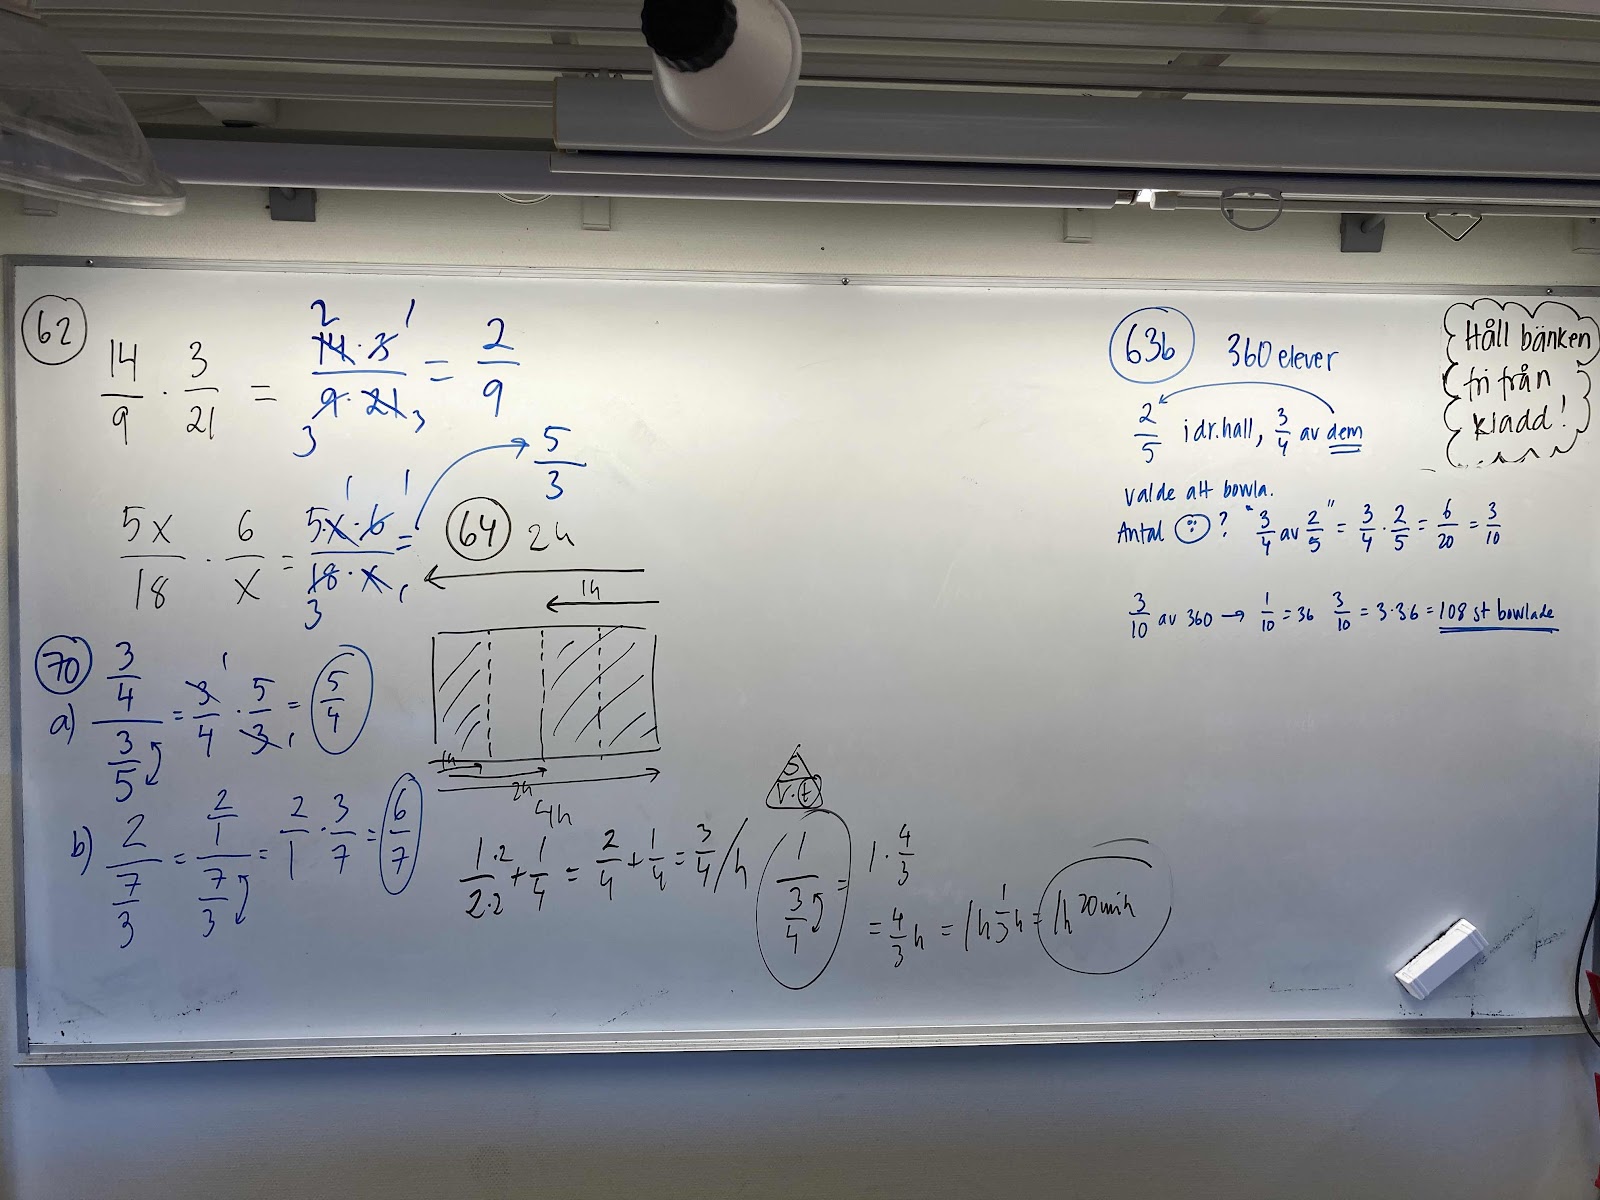 62
14/9 · 3/21 = 14·3/9·21 = 2/9
2 1
3 3
5x/18 · 6/x = 5x·6/18·x = 5/3
1 1
3 1
70
a) 3/4 / 3/5 = 3/4 · 5/3 = 5/4
1
1
b) 2 / 7/3 = 2/1 / 7/3 = 2/1 · 3/7 = 6/7
64 2h
1h
1h
2h
4h
1·2/2·2 + 1/4 = 2/4 + 1/4 = 3/4 /h
S
V·t
1 / 3/4 = 1 · 4/3
= 4/3 h = 1h 1/3 h = 1h 20min
63b 360 elever
2/5 idr.hall, 3/4 av dem
valde att bowla.
Antal ? "3/4 av 2/5" = 3/4 · 2/5 = 6/20 = 3/10
3/10 av 360 → 1/10 = 36 3/10 = 3·36 = 108 st bowlade
Håll bänken
fri från
kladd!